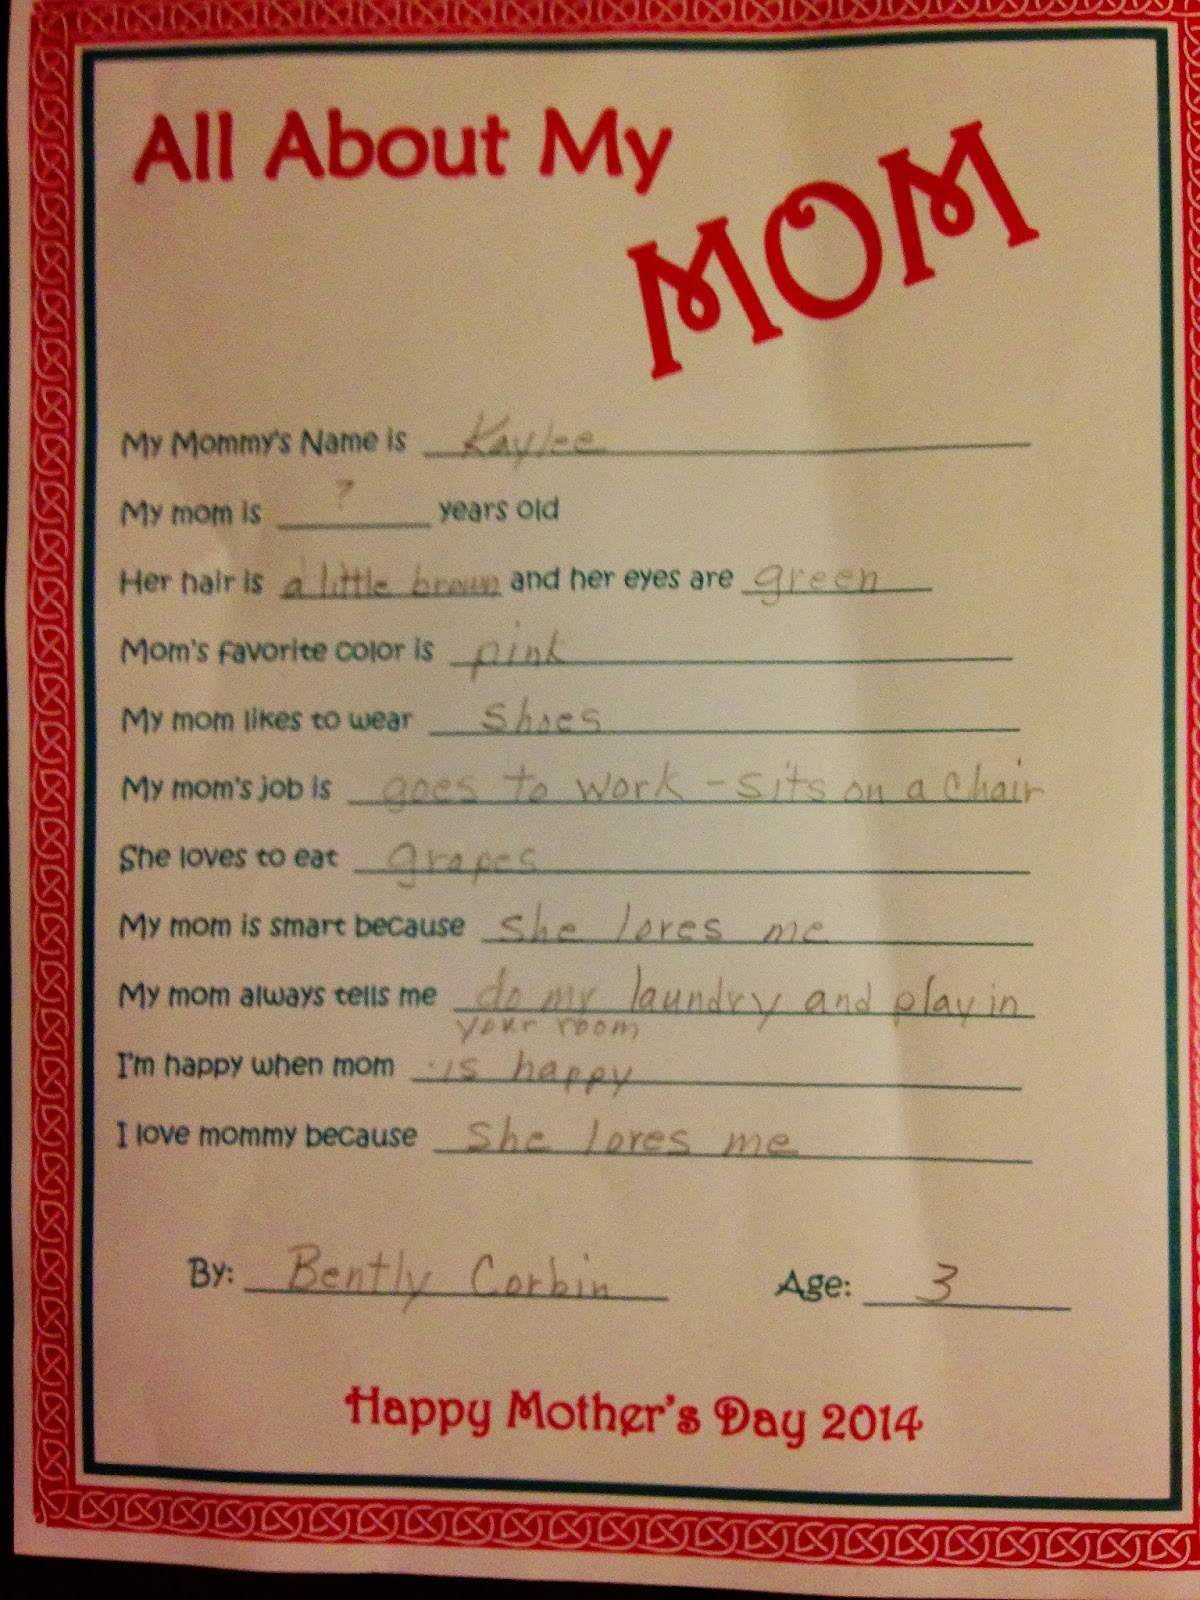 All About My
MOM
My Mommy's Name is Kaylee
My mom is ? years old
Her hair is a little brown and her eyes are green
Mom's favorite color is pink
My mom likes to wear shoes
My mom's job is goes to work - sits on a chair
She loves to eat grapes
My mom is smart because she loves me
My mom always tells me do my laundry and play in
your room
I'm happy when mom is happy
I love mommy because she loves me
By: Bently Corbin Age: 3
Happy Mother's Day 2014